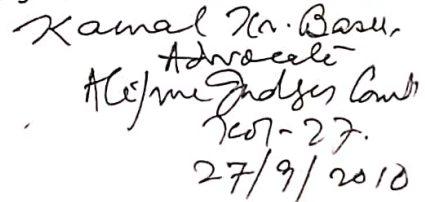 Kamal Kr. Basu,
Advocate
Alipore Judges Court
Kol-27.
27/9/2010